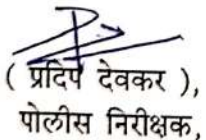 ( प्रदिप देवकर ),
पोलीस निरीक्षक,